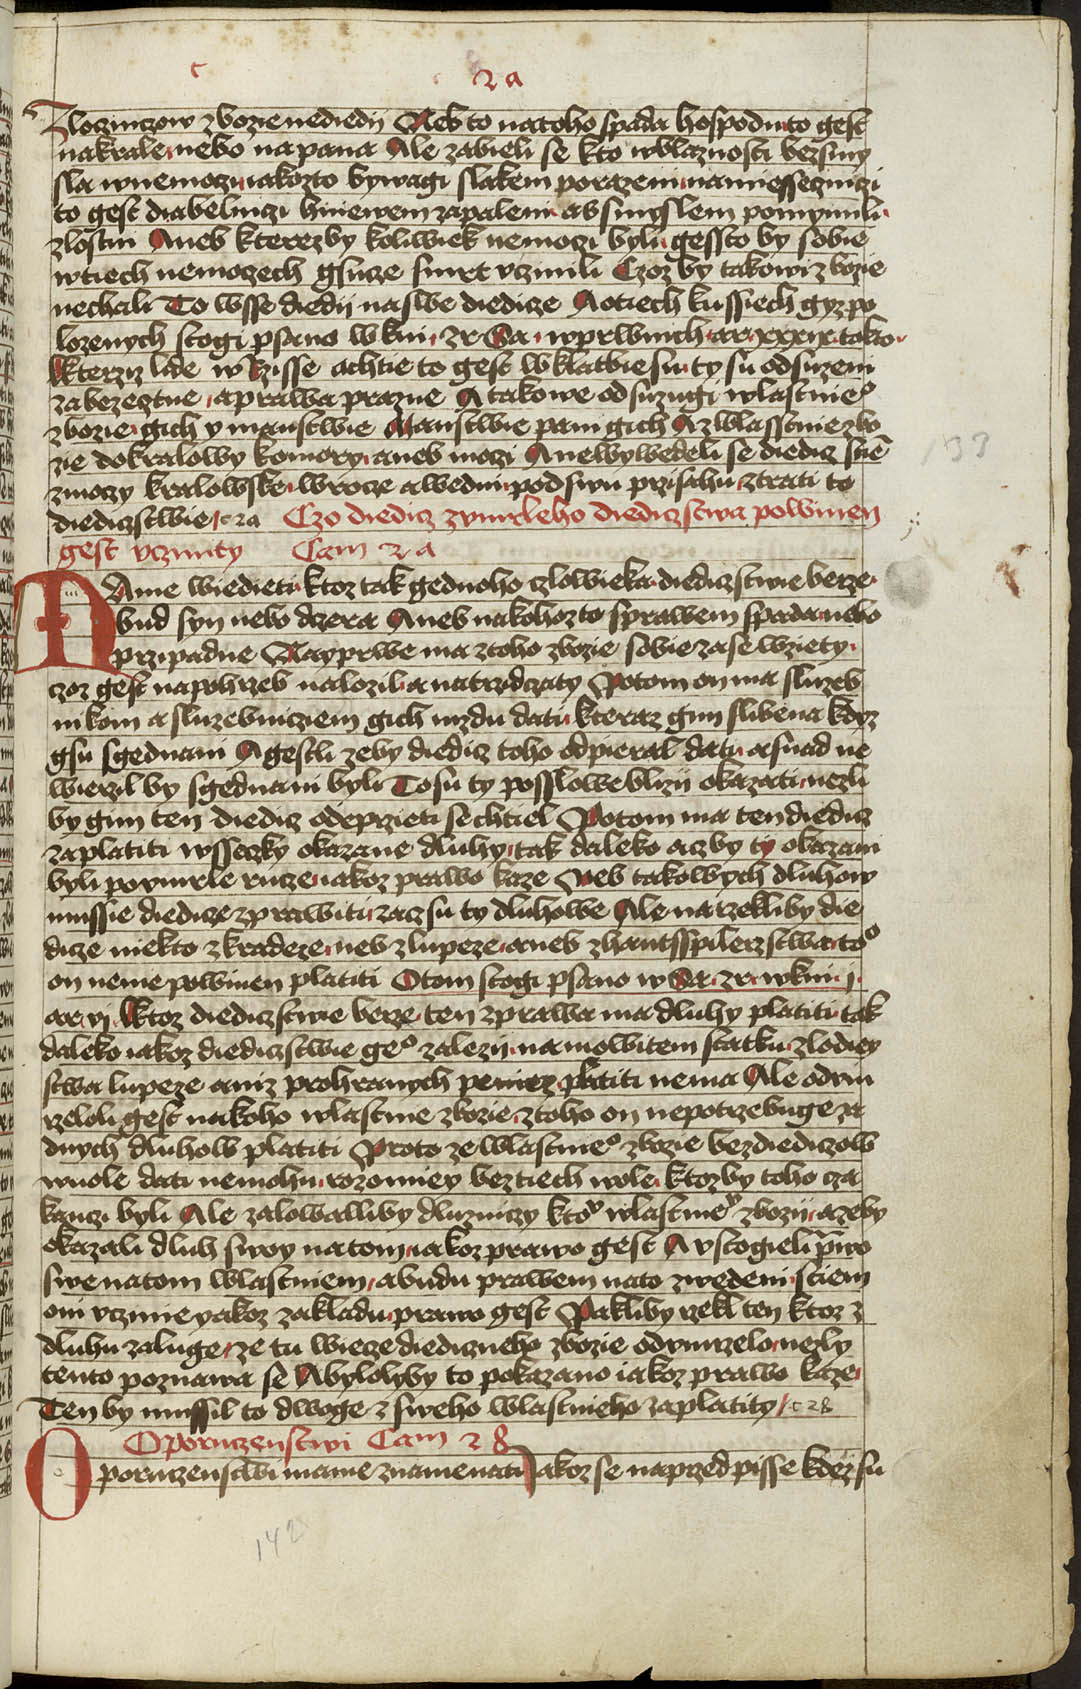 c 2a
Zloczinczow zbozie nediedij Neb to na toho spada hospodu to gest
na krale nebo na pana Ale zabieli se kto w blaznosti bez smy
sla w nemoczi iakozto bywagi slakem porazeni namiessecznici
to gest diabelniczi hniewem zapaleni a b smyslem pominuli
zlostiu Aneb kterez by koliwiek nemoczi byli gessto by sobie
w tiech nemoczech gsucze smrt vczinili Czoz by takowi zbozie
nechali To wsse diedij na swe diedicze A o tiech kussiech gyz po
lozenych stogi psano w kni zr Sa w prwnich ar xxxix takto
Kterziz lide w Rzisse achtie to gest w klatbie su ty su odsuzeni
za bezecztne a prawa prazne A takowe odsuzugi wlastnie
zbozie gich y manstwie Manstwie pani gich A zwlasstnie zbo
zie do kralowy komory aneb moczi A newywedeli se diedicz sue
z moczy kralowske w rocze a wedni pod swu przisahu ztrati to
diediczstwie c 2a Czo diedicz zumrleho diediczstwa powinen
gest vcziniti Cam 2a
DAme wiedieti ktoz tak gednoho czlowieka diediczstwie berze
bud syn nebo dczera Aneb na kohozto sprawem spada nebo
przipadne Nayprwe ma z toho zbozie sobie zase wziety
czoz gest na pohrzeb nalozil a na trzidczaty Potom on ma sluzeb
nikom a sluzebniciem gich mzdu dati kteraz gim slibena kdyz
gsu sgednani A gestli zeby diedicz toho odpieral dati a snad ne
wierzil by sgednani byli To su ty posslowe blizij okazati nezli
by gim ten diedicz odeprzieti se chtiel Potom ma ten diedicz
zaplatiti wssecky okazane dluhy tak daleko acz by ty okazani
byli po vmrle rucze iakoz prawo kaze Neb takowych dluhow
mussie diedicze zprawiti zacz su ty dluhowe Ale narzekliby die
dicze niekto z kradeze neb z lupeze aneb z hantsspilerzstwa to
on nenie powinen platiti O tom stogi psano w Sa zr w kni j
ar vj Ktoz diediczstwie berze ten z prawa ma dluhy platiti tak
daleko iakoz diediczstwie ge zalezij na mowitem statku zlodiey
stwa lupeze aniz prohranych peniez platiti nema Ale odvm
rzeloli gest na koho wlastnie zbozie z toho on nepotrzebuge za
dnych dluhow platiti Proto ze wlastnie zbozie bez diediczow
wuole dati nemohu rozomiey bez tiech wole ktoz by toho cza
kanczi byli Ale zalowalliby dluzniczy kto wlastnie zbozij a zeby
okazali dluh swoy na tom iakoz prawo gest A vstogieli prwo
swe na tom wlastniem a budu prawem na to zwedeni s tiem
oni vczinie yakoz zakladu prawo gest Pakliby rzekl ten ktoz z
dluhu zaluge ze tu wiecze diediczneho zbozie odvmrzelo nezly
tento poznawa se A byloby to pokazano iakoz prawo kaze
Ten by mussil to dwoge z sweho wlastnieho zaplatity c 28
O poruczenstwi Cam 28
O poruczenstwi mame znamenati Jakoz se naprzed pisse kdez su
133
142